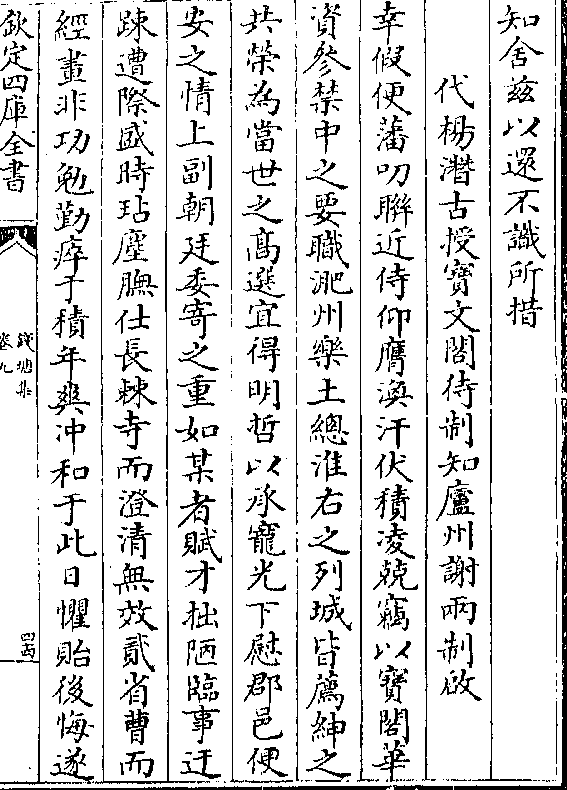 知舍茲以還不識所措
代楊潛古授寶文閣侍制知廬州謝兩制啟
幸假便藩叨聮近侍仰膺渙汗伏積凌兢竊以寶閣華
資參禁中之要職淝州樂土總淮右之列城皆薦紳之
共榮為當世之髙選宜得明哲以承寵光下慰郡邑便
安之情上副朝廷委寄之重如某者賦才拙陋臨事迂
踈遭際盛時玷塵膴仕長棘寺而澄清無效貳省曹而
經畫非功勉勤瘁于積年爽冲和于此日懼貽後悔遂
欽定四庫全書
錢塘集
卷九